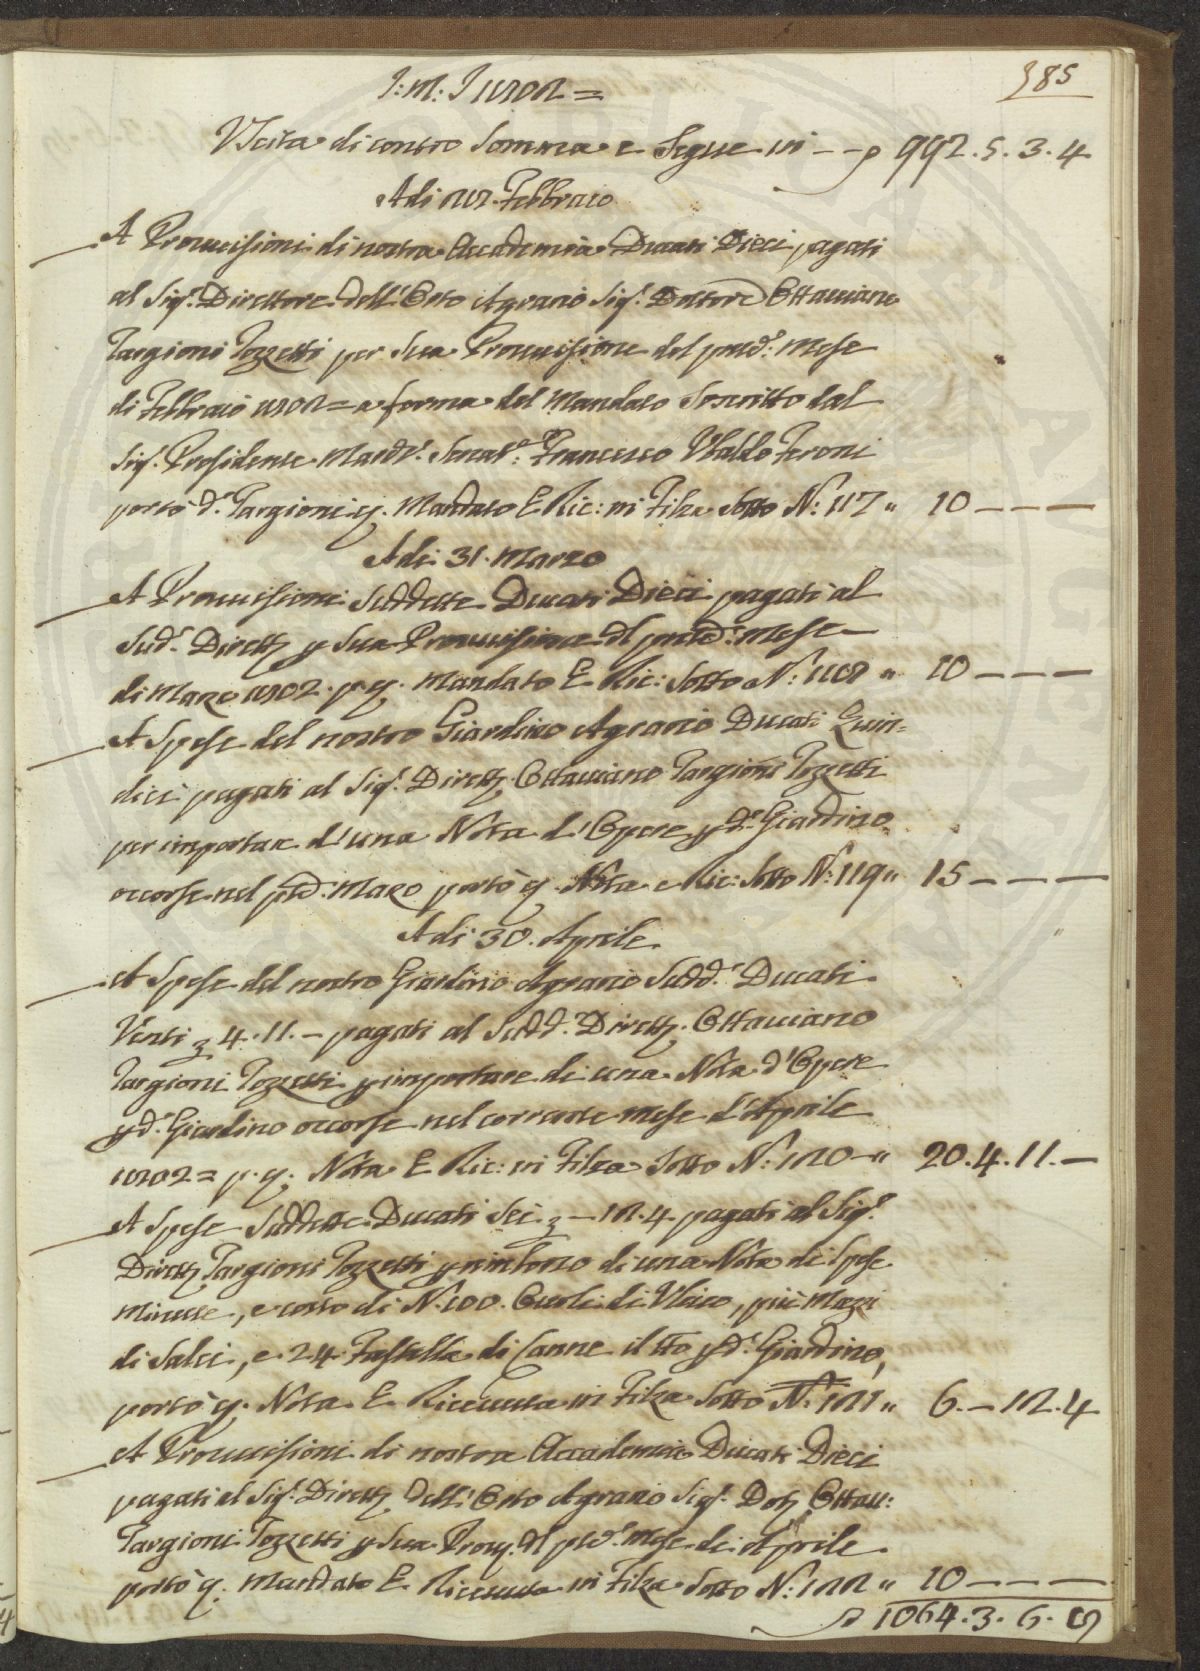 385
J: M: J 1802 =
Uscita di contro Somma e Segue in -- ꝑ 992. 5. 3. 4
Adi 28. Febbraio
A Provvisioni di nostra Accademia Ducati Dieci pagati
al Sig.r Direttore dell'Orto Agrario Sig.r Dottore Ottaviano
Targioni Tozzetti per Sua Provvisione del pnted.o Mese
di Febbraio 1802 = a forma del Mandato Soscritto dal
Sig.r Presidente March.e Senat.e Francesco Ubaldo Feroni
portò d.o Targioni q. Mandato E Ric: in Filza Sotto N: 117 " 10 - - -
Adi 31. Marzo
A Provvisioni Suddette Ducati Dieci pagati al
Sud.o Dirett.e ꝑ Sua Provvisione del pnted.o Mese
di Marzo 1802. p. q. Mandato E Ric: Sotto N: 118 " 10 - - -
A Spese del nostro Giardino Agrario Ducati Quin=
dici pagati al Sig.r Dirett.e Ottaviano Targioni Tozzetti
per importare d'una Nota d'Opere ꝑ d.o Giardino
occorse nel pnted.o Marzo portò q. Nota e Ric: Sotto N: 119 " 15 - - -
Adi 30. Aprile
A Spese del nostro Giardino Agrario Sudd.o Ducati
Venti 4. 11. - pagati al Sudd.o Dirett.e Ottaviano
Targioni Tozzetti ꝑ importare di una Nota d'Opere
ꝑ d.o Giardino occorse nel corrente mese d'Aprile
1802 = p. q. Nota E Ric: in Filza Sotto N: 120 - " 20. 4. 11. -
A Spese Suddette Ducati Sei - 12. 4 pagati al Sig.r
Dirett.e Targioni Tozzetti ꝑ rimborso di una Nota di Spese
Minute, e costo di N. 100. di, più Mazzi
di Salci, e 24 di Canne il tto ꝑ d.o Giardino,
portò q. Nota E Ricevuta in Filza Sotto N: 121 " 6. - 12. 4
A Provvisioni di nostra Accademia Ducati Dieci
pagati al Sig.r Dirett.e dell'Orto Agrario Sig.r Dott.e Ottav:
Targioni Tozzetti ꝑ Sua Provv. del pnted.o Mese di Aprile
portò q. Mandato E Ricevuta in Filza Sotto N: 122 " 10 - - -
ꝑ 1064. 3. 6. 8